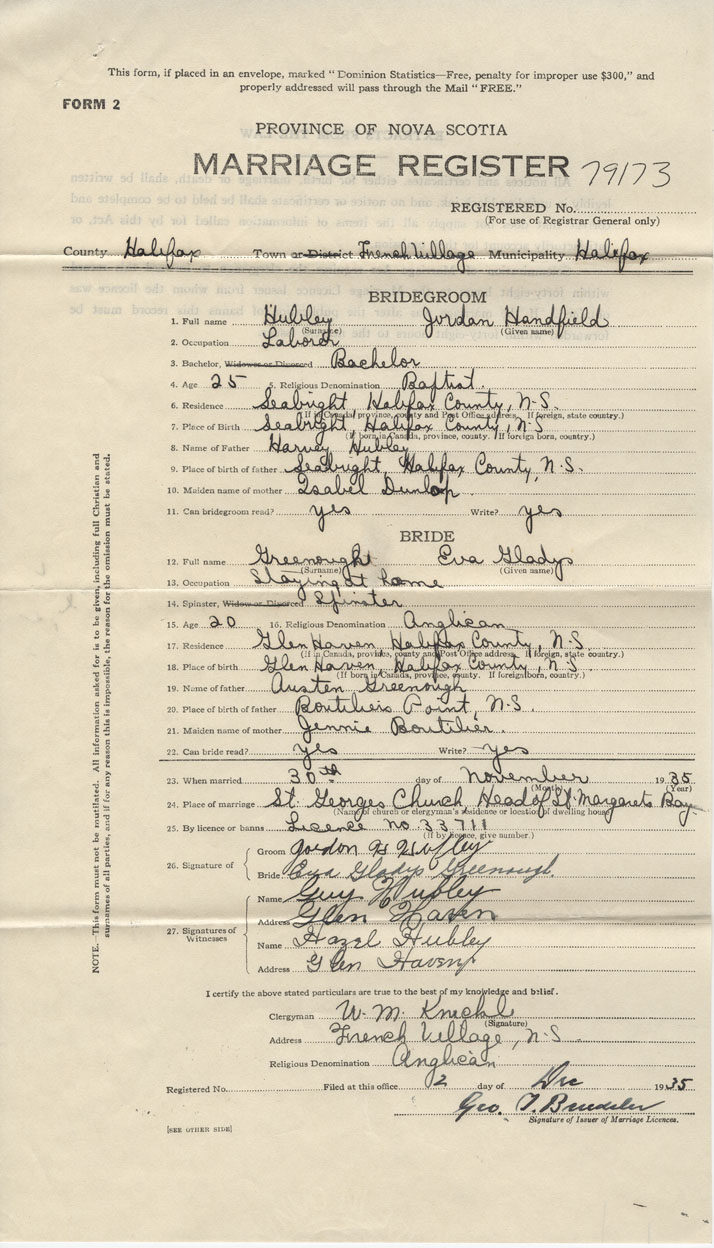 This form, if placed in an envelope, marked "Dominion Statistics—Free, penalty for improper use $300," and
properly addressed will pass through the Mail "FREE."
FORM 2
PROVINCE OF NOVA SCOTIA
MARRIAGE REGISTER 79173
REGISTERED No.
(For use of Registrar General only)
County Halifax Town or District French Village Municipality Halifax
BRIDEGROOM
1. Full name Hubley Jordan Handfield
(Surname) (Given name)
2. Occupation Laborer
3. Bachelor, Widower or Divorced Bachelor
4. Age 25 5. Religious Denomination Baptist.
6. Residence Seabright, Halifax County, N-S.
(If in Canada, province, county and Post Office address. If foreign, state country.)
7. Place of Birth Seabright, Halifax County, N-S
(If born in Canada, province, county. If foreign born, country.)
8. Name of Father Harvey Hubley
9. Place of birth of father Seabright, Halifax County, N-S.
10. Maiden name of mother Isabel Dunlop
11. Can bridegroom read? yes Write? yes
BRIDE
12. Full name Greenought Eva Gladys
(Surname) (Given name)
13. Occupation Staying at home
14. Spinster, Widow or Divorced Spinster
15. Age 20 16. Religious Denomination Anglican
17. Residence Glen Haven, Halifax County, N-S.
(If in Canada, province, county and Post Office address. If foreign, state country.)
18. Place of birth Glen Haven, Halifax County, N-S.
(If born in Canada, province, county. If foreign born, country.)
19. Name of father Austen Greenough
20. Place of birth of father Boutiliers Point, N-S.
21. Maiden name of mother Jennie Boutilier.
22. Can bride read? yes Write? yes
23. When married 30th day of November 1935
(Month) (Year)
24. Place of marriage St. Georges Church Head of St. Margarets Bay
(Name of church or clergyman's residence or location of dwelling house)
25. By licence or banns Licence no. 33711
(If by licence, give number.)
26. Signature of
Groom Hubley
Bride Eva Gladys Greenough.
27. Signatures of Witnesses
Name Guy Hubley
Address Glen Haven
Name Hazel Hubley
Address Glen Haven
I certify the above stated particulars are true to the best of my knowledge and belief.
Clergyman W. M.
(Signature)
Address French Village, N-S
Religious Denomination Anglican
Registered No. Filed at this office 2 day of Dec 1935
Geo. T.
Signature of Issuer of Marriage Licences.
[SEE OTHER SIDE]
NOTE. This form must not be mutilated. All information asked for is to be given, including full Christian and
surnames of all parties, and if for any reason this is impossible, the reason for the omission must be stated.